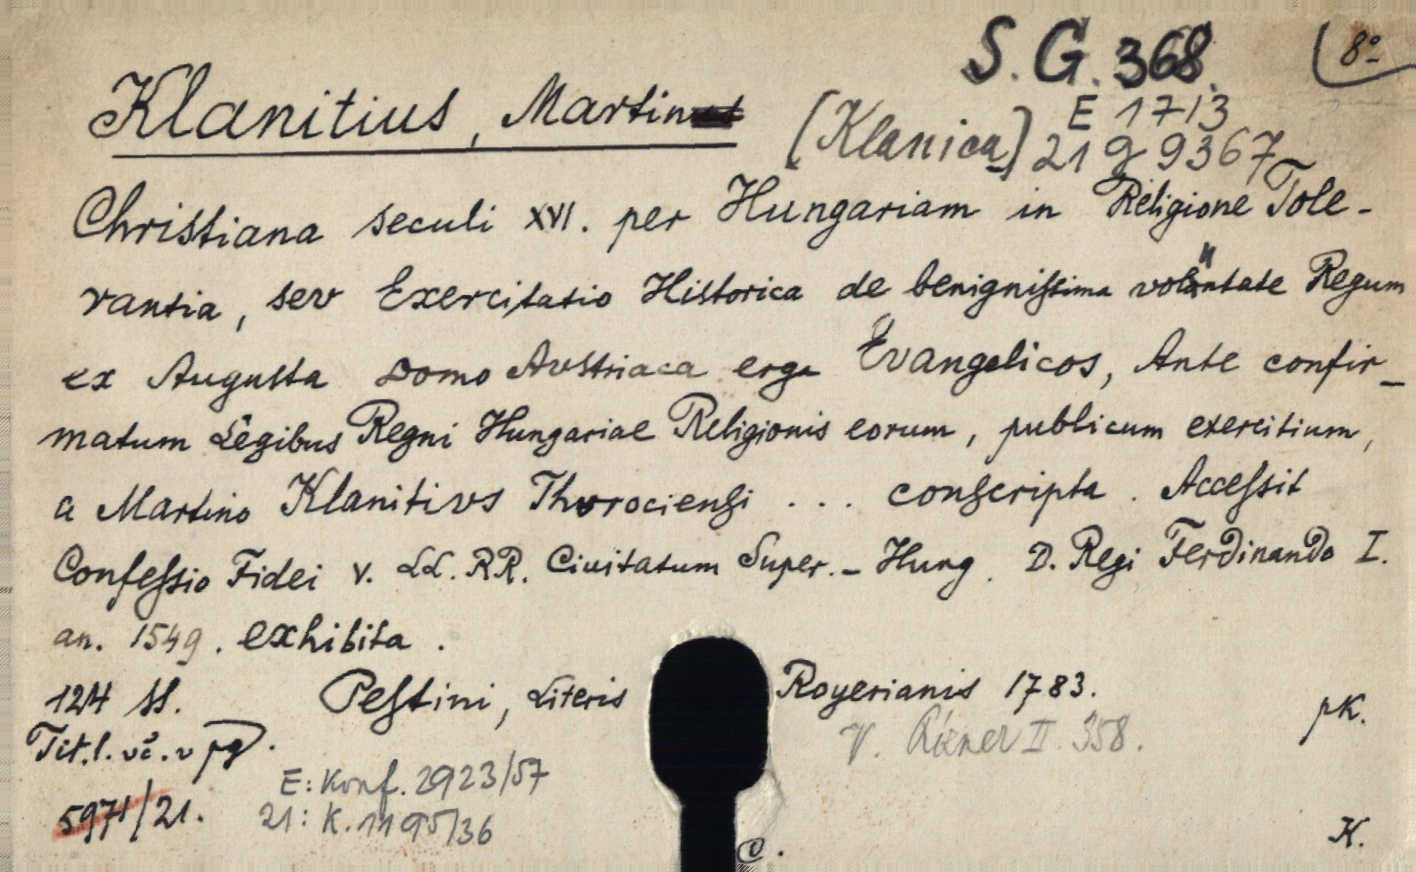 S. G. 368.
8°
Klanitius, Martin
[Klanica]
E 1713
21 g 9367
Christiana seculi XVI. per Hungariam in Religione Tole-
rantia, sev Exercitatio Historica de benignissima voluntate Regum
ex Augusta Domo Avstriaca erga Evangelicos, Ante confir-
matum Legibus Regni Hungariae Religionis eorum, publicum exercitium,
a Martino Klanitivs Thvrociensi ... conscripta. Accessit
Confessio Fidei v. LL. RR. Civitatum Super.- Hung. D. Regi Ferdinando I.
an. 1549. exhibita.
124 ss. Pestini, Literis Royerianis 1783.
pk.
Tit. l. vč. v pg.
V. Rizner II. 358.
E: Konf. 2923/57
5971/21.
21: K. 1195/36
K.
C.